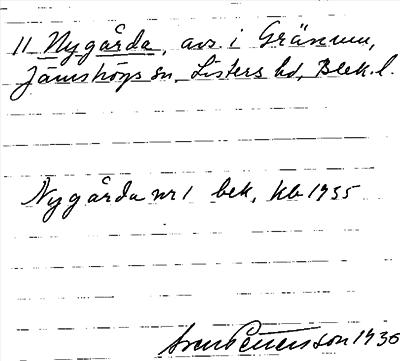 11 Nygårda, avs. i Gränum,
Jämshögs sn, Listers hd, Blek. l.
Nygårda nr 1 bek, kb 1955
Pettersson 1936